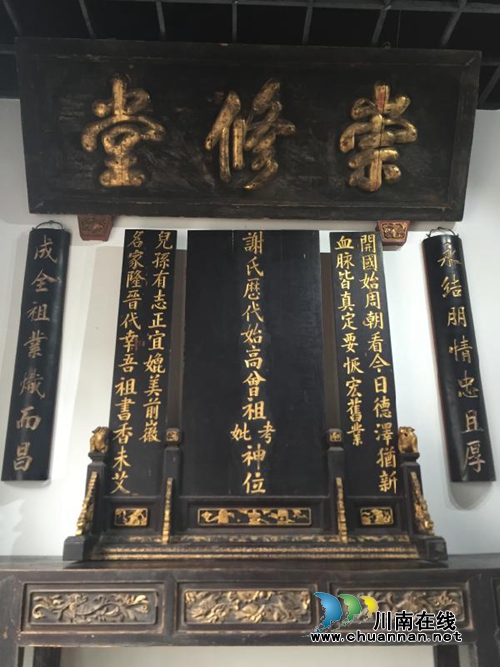 崇修堂
永結朋情忠且厚
開國始周朝看今日德澤猶新
血脉皆真定要恢宏舊業
謝氏歷代始高曾祖考妣神位
名家隆晉代幸吾祖書香未艾
兒孫有志正宜媲美前徽
成全祖業熾而昌
川南在线
www.chuannan.net